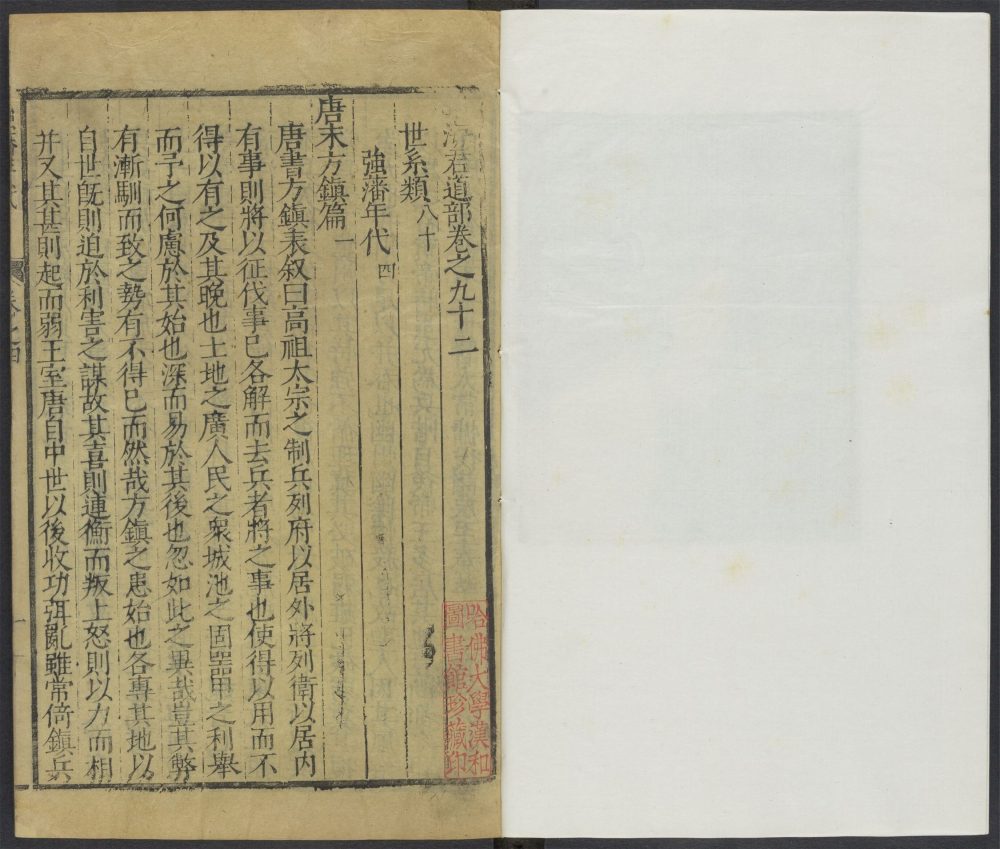 治君道部卷之九十二
世系類八十
強藩年代四
唐末方鎮篇一
唐書方鎮表叙曰高祖太宗之制兵列府以居外將列衛以居内
有事則將以征伐事已各解而去兵者將之事也使得以用而不
得以有之及其晚也土地之廣人民之衆城池之固器甲之利舉
而予之何慮於其始也深而易於其後也忽如此之異哉豈其弊
有漸馴而致之勢有不得已而然哉方鎮之患始也各專其地以
自世旣則迫於利害之謀故其喜則連衡而叛上怒則以力而相
并又其甚則起而弱王室唐自中世以後收功弭亂雖常倚鎮兵
卷之四
哈佛大學漢和
圖書館珍藏印